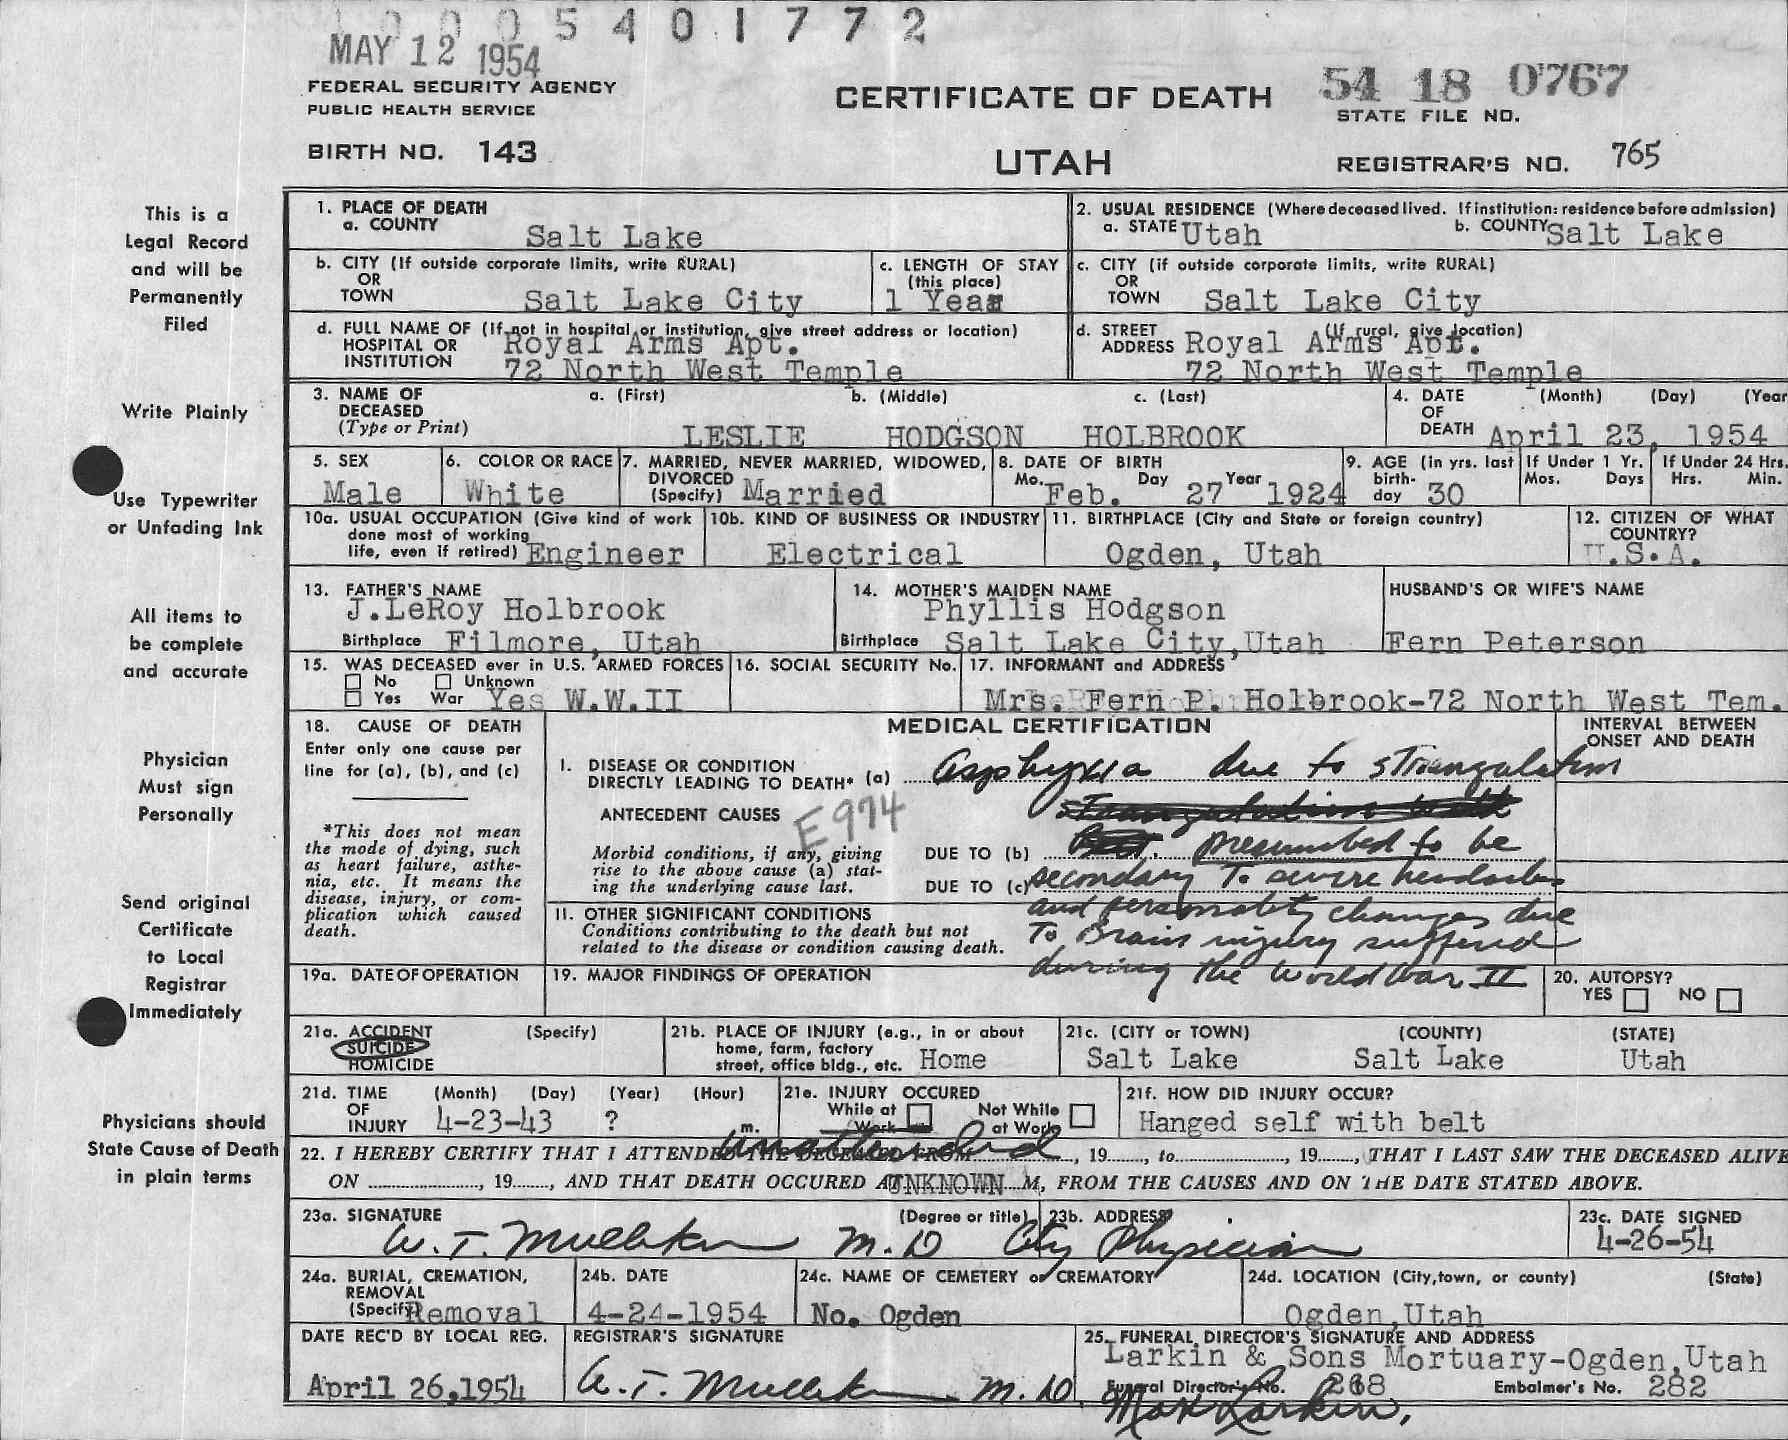 0 0 0 5 4 0 1 7 7 2
MAY 12 1954
FEDERAL SECURITY AGENCY
PUBLIC HEALTH SERVICE
BIRTH NO. 143
CERTIFICATE OF DEATH
UTAH
54 18 0767
STATE FILE NO.
REGISTRAR'S NO. 765
This is a
Legal Record
and will be
Permanently
Filed
Write Plainly
Use Typewriter
or Unfading Ink
All items to
be complete
and accurate
Physician
Must sign
Personally
Send original
Certificate
to Local
Registrar
Immediately
Physicians should
State Cause of Death
in plain terms
1. PLACE OF DEATH
a. COUNTY Salt Lake
2. USUAL RESIDENCE (Where deceased lived. If institution: residence before admission)
a. STATE Utah b. COUNTY Salt Lake
b. CITY (If outside corporate limits, write RURAL)
OR
TOWN Salt Lake City
c. LENGTH OF STAY
(this place)
1 Year
c. CITY (if outside corporate limits, write RURAL)
OR
TOWN Salt Lake City
d. FULL NAME OF (If not in hospital or institution, give street address or location)
HOSPITAL OR Royal Arms Apt.
INSTITUTION 72 North West Temple
d. STREET (If rural, give location)
ADDRESS Royal Arms Apt.
72 North West Temple
3. NAME OF a. (First) b. (Middle) c. (Last)
DECEASED
(Type or Print) LESLIE HODGSON HOLBROOK
4. DATE (Month) (Day) (Year
OF
DEATH April 23, 1954
5. SEX
Male
6. COLOR OR RACE
White
7. MARRIED, NEVER MARRIED, WIDOWED,
DIVORCED
(Specify) Married
8. DATE OF BIRTH
Mo. Day Year
Feb. 27 1924
9. AGE (in yrs. last
birth-
day 30
If Under 1 Yr.
Mos. Days
If Under 24 Hrs.
Hrs. Min.
10a. USUAL OCCUPATION (Give kind of work
done most of working
life, even if retired) Engineer
10b. KIND OF BUSINESS OR INDUSTRY
Electrical
11. BIRTHPLACE (City and State or foreign country)
Ogden, Utah
12. CITIZEN OF WHAT
COUNTRY?
U.S.A.
13. FATHER'S NAME
J.LeRoy Holbrook
Birthplace Filmore, Utah
14. MOTHER'S MAIDEN NAME
Phyllis Hodgson
Birthplace Salt Lake City,Utah
HUSBAND'S OR WIFE'S NAME
Fern Peterson
15. WAS DECEASED ever in U.S. ARMED FORCES
No Unknown
Yes War Yes W.W.II
16. SOCIAL SECURITY No.
17. INFORMANT and ADDRESS
Mrs. Fern P. Holbrook-72 North West Tem.
18. CAUSE OF DEATH
Enter only one cause per
line for (a), (b), and (c)
*This does not mean
the mode of dying, such
as heart failure, asthe-
nia, etc. It means the
disease, injury, or com-
plication which caused
death.
MEDICAL CERTIFICATION
INTERVAL BETWEEN
ONSET AND DEATH
I. DISEASE OR CONDITION
DIRECTLY LEADING TO DEATH* (a) asphyxia due to strangulation
ANTECEDENT CAUSES
E974
Morbid conditions, if any, giving
rise to the above cause (a) stat-
ing the underlying cause last.
DUE TO (b) presumbed to be
DUE TO (c) secondary To severe headaches
and personality changes due
To Brain injury suffered
during the World War II
II. OTHER SIGNIFICANT CONDITIONS
Conditions contributing to the death but not
related to the disease or condition causing death.
19a. DATE OF OPERATION
19. MAJOR FINDINGS OF OPERATION
20. AUTOPSY?
YES NO
21a. ACCIDENT (Specify)
SUICIDE
HOMICIDE
21b. PLACE OF INJURY (e.g., in or about
home, farm, factory
street, office bldg., etc. Home
21c. (CITY or TOWN) (COUNTY) (STATE)
Salt Lake Salt Lake Utah
21d. TIME (Month) (Day) (Year) (Hour)
OF
INJURY 4-23-43 ? m.
21e. INJURY OCCURED
While at Work
Not While at Work
21f. HOW DID INJURY OCCUR?
Hanged self with belt
unattended
22. I HEREBY CERTIFY THAT I ATTENDED THE DECEASED FROM, 19, to, 19, THAT I LAST SAW THE DECEASED ALIVE
ON, 19, AND THAT DEATH OCCURED AT UNKNOWN M, FROM THE CAUSES AND ON THE DATE STATED ABOVE.
23a. SIGNATURE (Degree or title)
M.D
23b. ADDRESS
City Physician
23c. DATE SIGNED
4-26-54
24a. BURIAL, CREMATION,
REMOVAL
(Specify) Removal
24b. DATE
4-24-1954
24c. NAME OF CEMETERY or CREMATORY
No. Ogden
24d. LOCATION (City,town, or county) (State)
Ogden,Utah
DATE REC'D BY LOCAL REG.
April 26,1954
REGISTRAR'S SIGNATURE
M.D.
25. FUNERAL DIRECTOR'S SIGNATURE AND ADDRESS
Larkin & Sons Mortuary-Ogden,Utah
Funeral Director's No. 268 Embalmer's No. 282
Max Larkin,